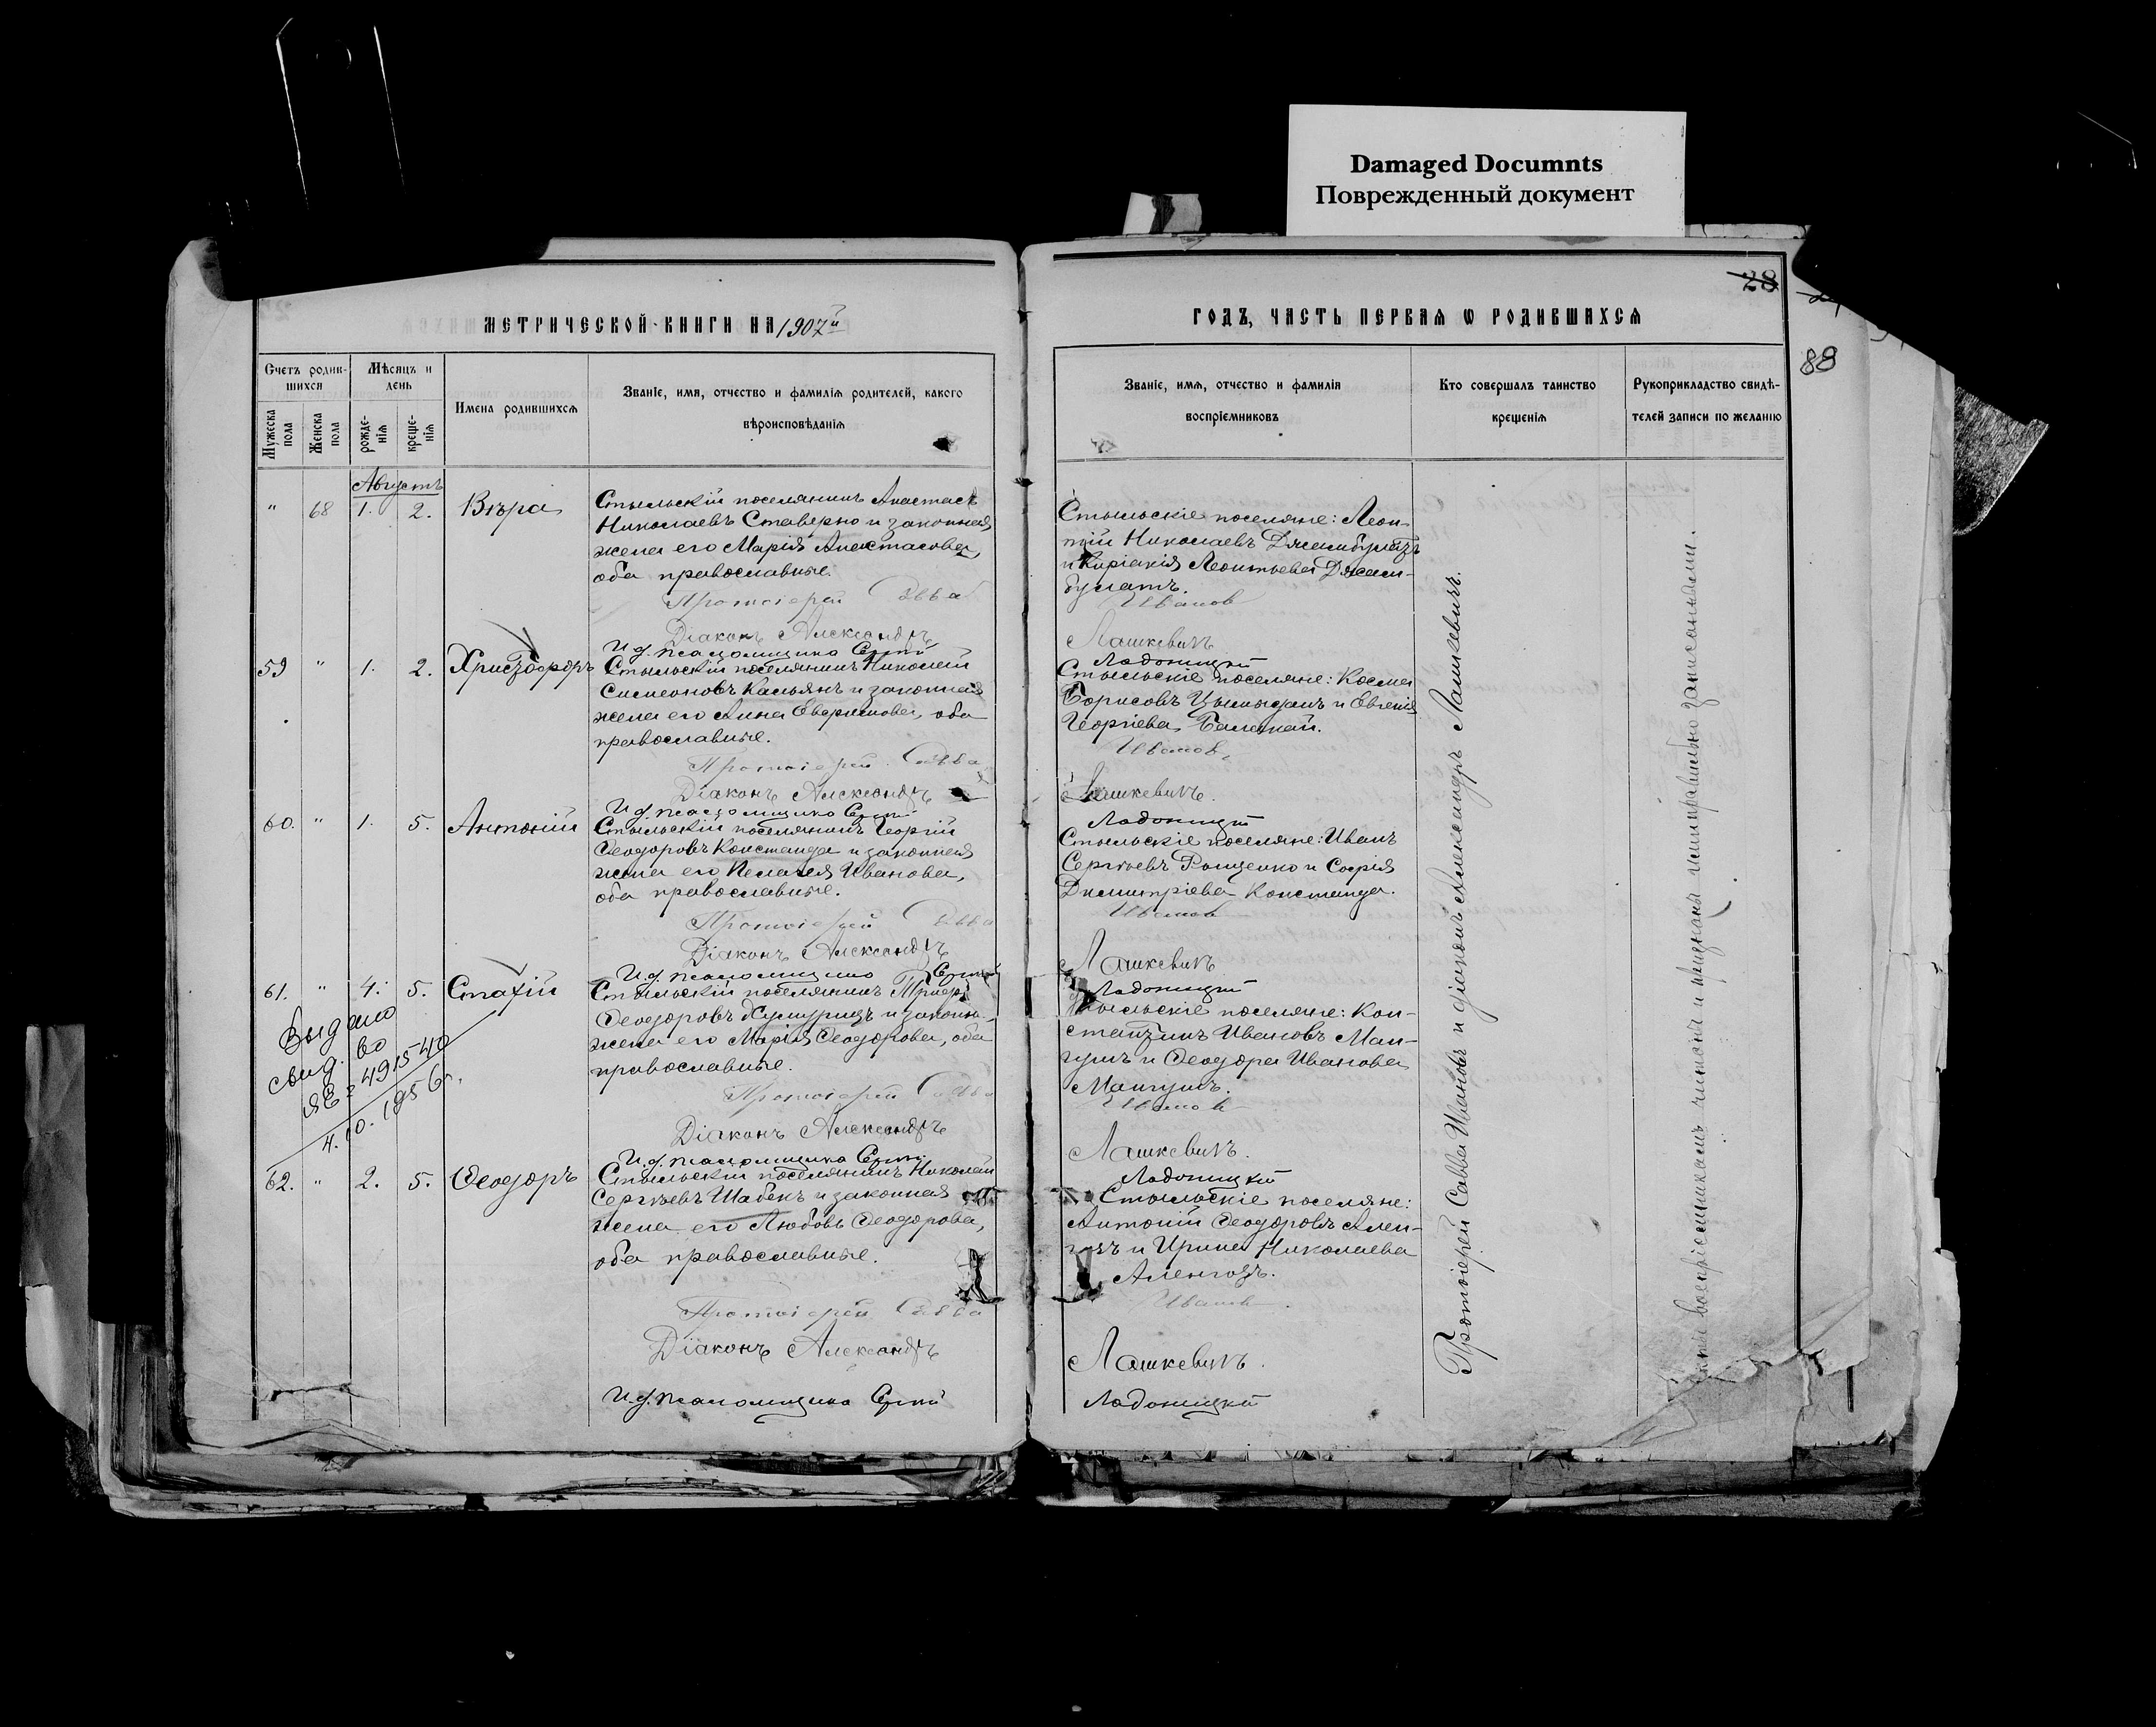 Damaged Documnts
Поврежденный документ
28
88
МЕТРИЧЕСКОЙ КНИГИ НА 1907й
ГОДЪ, ЧАСТЬ ПЕРВАЯ Ѡ РОДИВШИХСЯ
Счетъ родившихся
Мужеска пола
Женска пола
Мѣсяцъ и день
рожденія
крещенія
Имена родившихся
Званіе, имя, отчество и фамилія родителей, какого
вѣроисповѣданія
Званіе, имя, отчество и фамилія
воспріемниковъ
Кто совершалъ таинство
крещенія
Рукоприкладство свидѣ-
телей записи по желанію
Августъ
" 68 1. 2. Вѣра
Стыльскій поселянинъ Анастасъ
Николаевъ Ставерно и законная
жена его Марія Анастасова,
оба православные.
Протоіерей Савва
Діаконъ Александръ
И.д. псаломщика
Стыльскіе поселяне: Леон-
тій Николаевъ Джамбулатъ
и Киріакія Леонтьева Джам-
булатъ.
Ивановъ
Лашкевичъ
Ладоницкій
59 " 1. 2. Христофоръ
Стыльскій поселянинъ Николай
Симеоновъ Касьянъ и законная
жена его Анна оба
православные.
Протоіерей Савва
Діаконъ Александръ
И.д. псаломщика
Стыльскіе поселяне: Косма
Борисовъ и Евгенія
Георгіева
Ивановъ
Лашкевичъ.
Ладоницкій
60. " 1. 5. Антоній
Стыльскій поселянинъ Георгій
Ѳеодоровъ Константа и законная
жена его Пелагея Иванова,
оба православные.
Протоіерей Савва
Діаконъ Александръ
И.д. псаломщика
Стыльскіе поселяне: Иванъ
Сергѣевъ Рощенко и Софія
Димитріева Константа.
Ивановъ
Лашкевичъ
Ладоницкій
61. " 4. 5. Стахій
Выдано
свид. во
ЯЕ 2 491540
4.10.1956г.
Стыльскій поселянинъ
Ѳеодоровъ и законн.
жена его Марія Ѳеодорова, оба
православные.
Протоіерей Савва
Діаконъ Александръ
И.д. псаломщика
Стыльскіе поселяне: Кон-
стантинъ Ивановъ Ман-
гушъ и Ѳеодора Иванова
Мангушъ.
Ивановъ
Лашкевичъ.
Ладоницкій
62. " 2. 5. Ѳеодоръ
Стыльскій поселянинъ Николай
Сергѣевъ Шабекъ и законная
жена его Любовь Ѳеодорова,
оба православные.
Протоіерей Савва
Діаконъ Александръ
И.д. псаломщика
Стыльскіе поселяне:
Антоній Ѳеодоровъ Ален-
гозъ и Ирина Николаева
Аленгозъ.
Ивановъ.
Лашкевичъ.
Ладоницкій
Протоіерей Савва Ивановъ и діаконъ Александръ Лашкевичъ.
воспріемникамъ читаны и признаны ими правильно записанными.